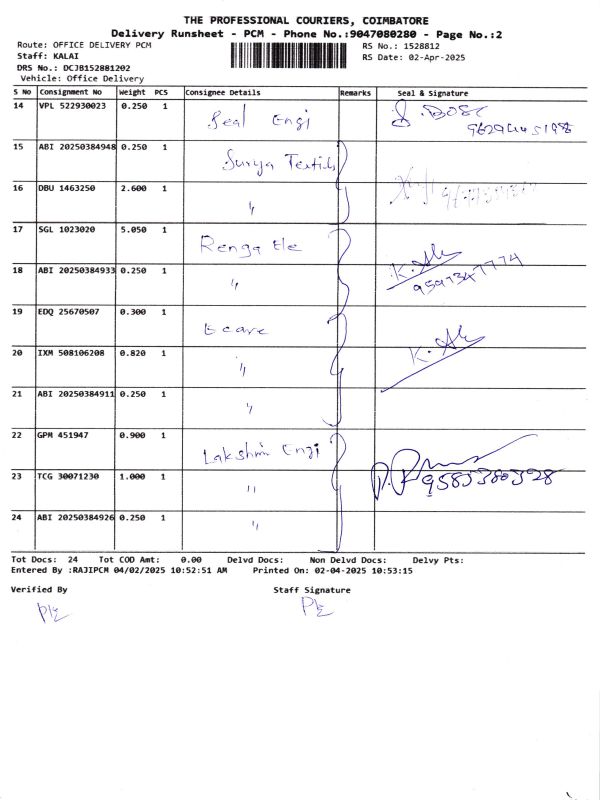 THE PROFESSIONAL COURIERS, COIMBATORE
Delivery Runsheet - PCM - Phone No.:9047080280 - Page No.:2
Route: OFFICE DELIVERY PCM
Staff: KALAI
DRS No.: DCJB152881202
Vehicle: Office Delivery
RS No.: 1528812
RS Date: 02-Apr-2025
S No Consignment No Weight PCS Consignee Details Remarks Seal & Signature
14 VPL 522930023 0.250 1 Seal Engi
15 ABI 20250384948 0.250 1 Surya Textils
16 DBU 1463250 2.600 1 〃
17 SGL 1023020 5.050 1 Renga tle K.
18 ABI 20250384933 0.250 1 〃 9597347774
19 EDQ 25670507 0.300 1 Ecare
20 IXM 508106208 0.820 1 〃 K.
21 ABI 20250384911 0.250 1 〃
22 GPM 451947 0.900 1 Lakshmi Engi
23 TCG 30071230 1.000 1 〃 9585380328
24 ABI 20250384926 0.250 1 〃
Tot Docs: 24 Tot COD Amt: 0.00 Delvd Docs: Non Delvd Docs: Delvy Pts:
Entered By :RAJIPCM 04/02/2025 10:52:51 AM Printed On: 02-04-2025 10:53:15
Verified By Staff Signature